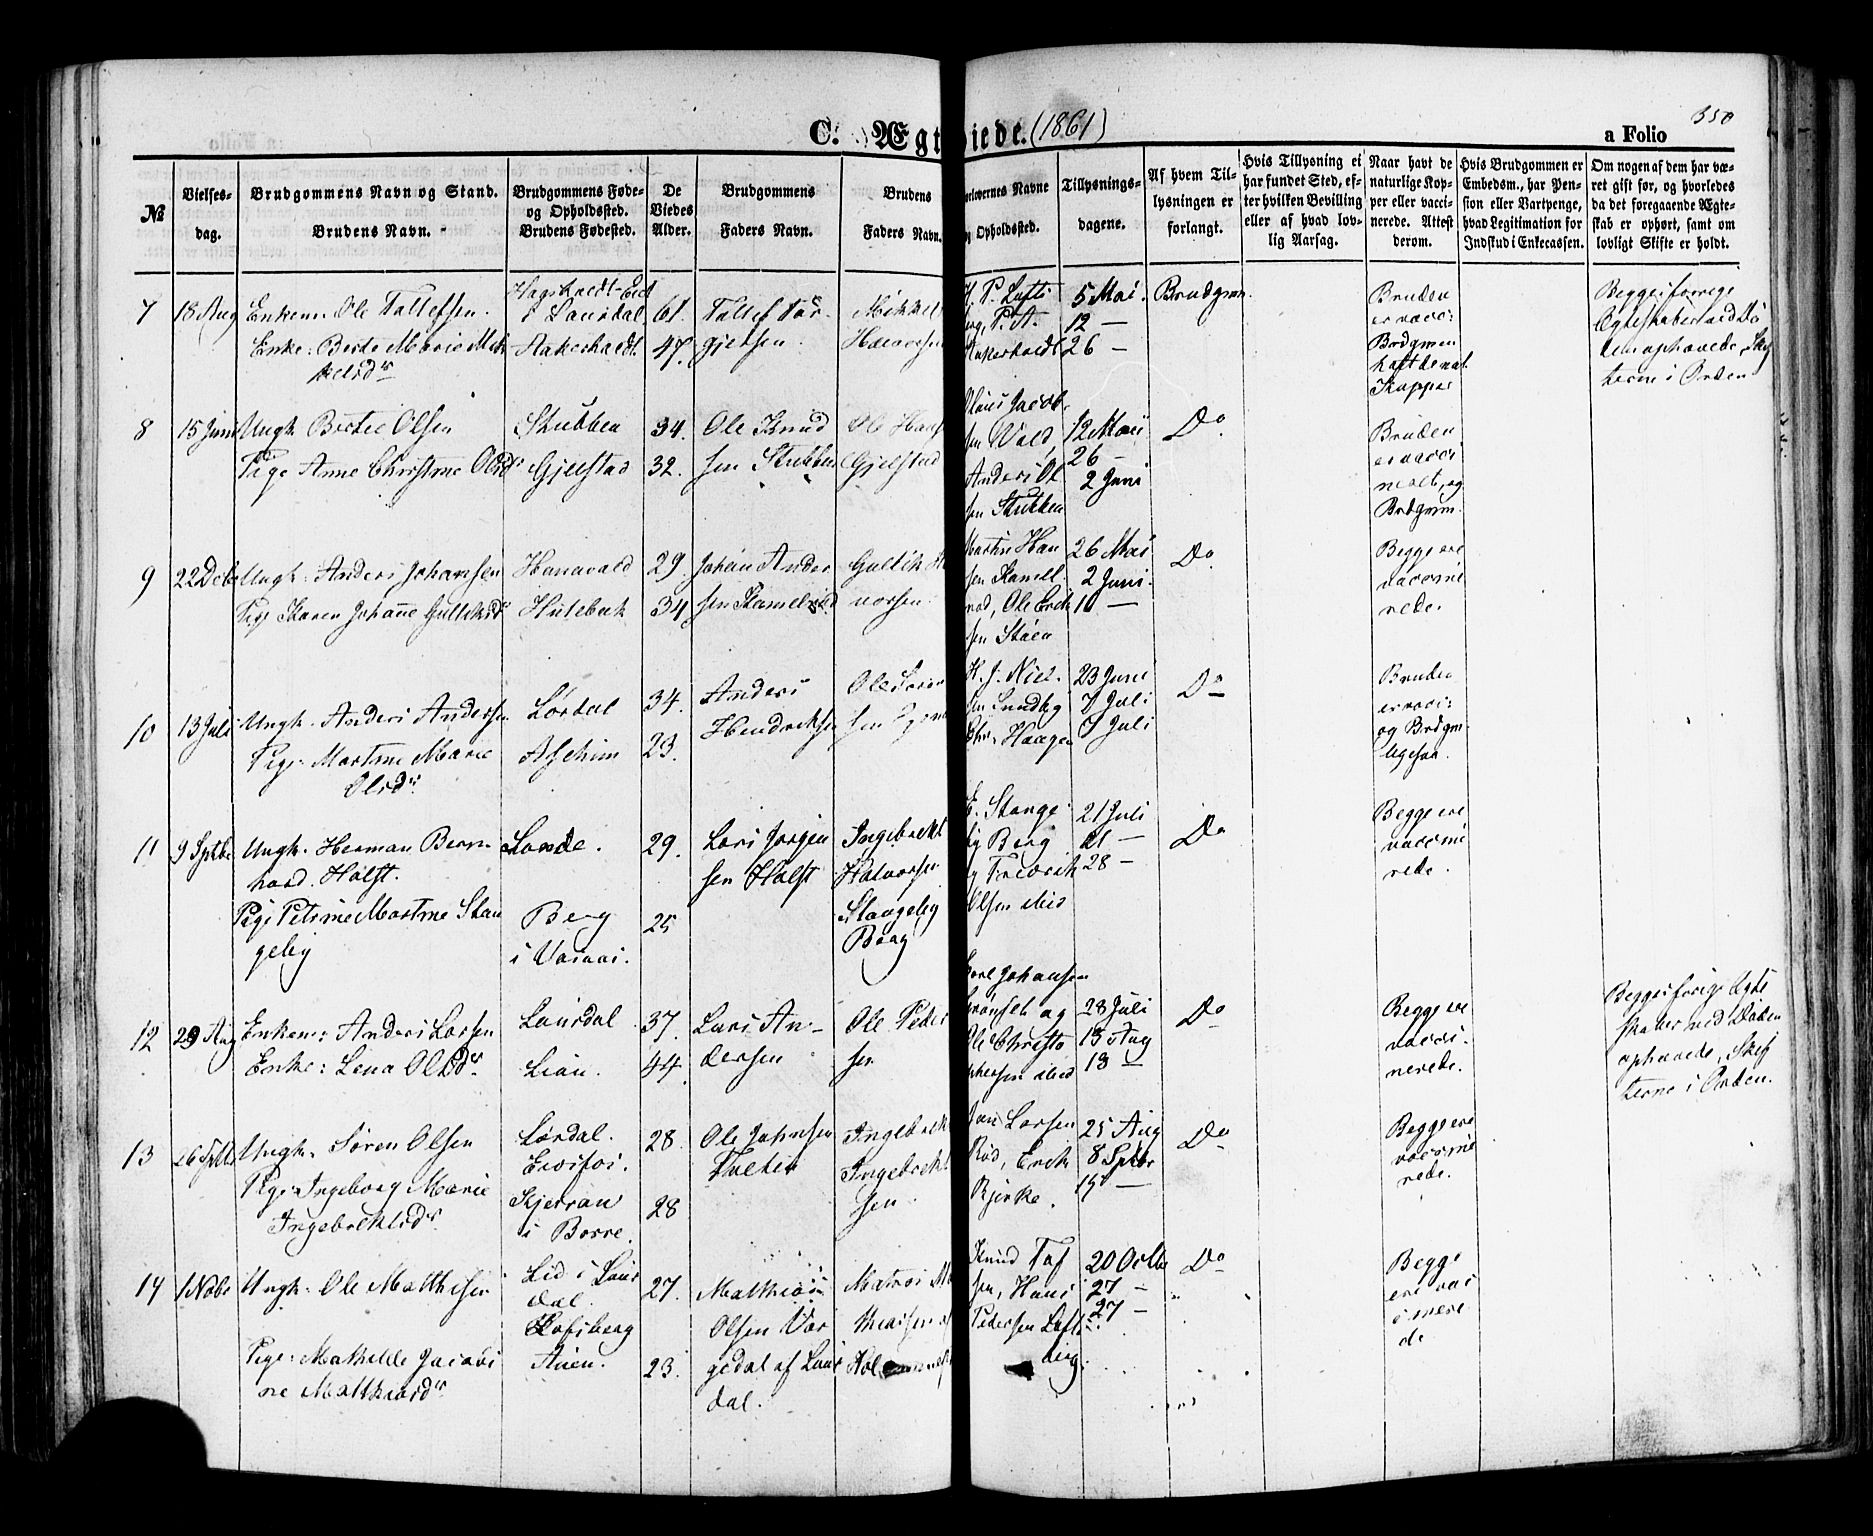 350
C. Ægt
viede. (1861)
a Folio
№
Vielses-
dag.
Brudgommens Navn og Stand.
Brudens Navn.
Brudgommens Føde-
og Opholdssted.
Brudens Fødested.
De
Viedes
Alder.
Brudgommens
Faders Navn.
Brudens
Faders Navn.
Forlovernes Navne
og Opholdssted.
Tillysnings-
dagene.
Af hvem Til-
lysningen er
forlangt.
Hvis Tillysning ei
har fundet Sted, ef-
ter hvilken Bevilling
eller af hvad lov-
lig Aarsag.
Naar havt de
naturlige Kop-
per eller vacci-
nerede. Attest
derom.
Hvis Brudgommen er
Embedsm., har Pen-
sion eller Vartpenge,
hvad Legitimation for
Indskud i Enkecassen.
Om nogen af dem har væ-
ret gift før, og hvorledes
da det foregaaende Ægte-
skab er ophørt, samt om
lovligt Skifte er holdt.
7
18 Aug
Enkem: Ole Tallefsen.
Enke: Berte Marie Mik
kelsdr
i Laurdal
Aakerholdt
61.
47.
Tallef Tar-
gjelsen.
Mikkel
Halvorsen
5 Mai.
12 —
26 —
Brudgm.
Bruden
er vacc:
Brdgmen
haft de nat.
Kopper
Begge i forrige
Egteskaber ved Dø
den ophævede, Skif
terne i Orden
8
15 Juni
Ungk. Bertel Olsen
Pige Anne Christine Olsdr
Stubben
Gjelstad
34.
32.
Ole Knud
sen Stubben
Ole Hans
Gjelstad
Olaus Jacob-
sen Wold,
Anders Ol
sen Stubben
12 Mai
26 —
2 Juni
Do
Bruden
er vacci
neret, og
Brdgmm.
9
22 Debr
Ungk: Anders Johansen
Pige Karen Johanne Gulliksdr
Hanavold
Hulebak
29.
34.
Johan Ander
sen
Gullik H
vorsen.
Martin Han
sen
Ole Erik
sen Støen
26 Mai
2 Juni.
10 —
Do
Begge ere
vaccine
rede.
10
13 Juli
Ungk. Anders Andersen
Pige: Martine Marie
Olsdr.
Lørdal
Askim
34.
23.
Anders
Hendriksen
Ole
sen
H. J. Niel-
sen Sundby
Chr. Haagen
23 Juni
7 Juli
7 Juli
Do
Bruden
er vacci:
og Brdgm
ligesaa.
11
9 Sptbr
Ungk. Herman Bern
hard. Holst.
Pige Petrine Martine Stan
geby
Lande.
Berg
i
29.
25
Lars Jørgen
sen Holst
Ingebrekt
Halvorsen
Stangeby
Berg
E. Stange
by Berg
og Frederik
Olsen ibid
21 Juli
21 —
28 —
Do
Begge ere
vaccine
rede.
12
29 Aug
Enkem: Anders Larsen
Enke: Lena Olsdr
Laurdal
Lian.
37.
44.
Lars An-
dersen
Ole Peder
sen
Carl Johansen
Grønset og
Ole Christo
phersen ibid
28 Juli
13 Aug
18 —
Do
Begge ere
vacci-
nerede.
Begges forrige Egte
skaber ved Døden
ophævede, Skif
terne i Orden.
13
26 Sptbr
Ungk. Søren Olsen
Pige: Ingeborg Marie
Ingebrektsdr.
Lørdal.
Kjerran
i Borre.
28
28
Ole Johnsen
Tveten
Ingebrek
Ingebrekt
sen.
Larsen
Rød, Erik
Bjerke.
25 Aug
8 Sptbr
15 —
Do
Begge ere
vaccine
rede.
14
1 Nobr
Ungk: Ole Mathisen
Pige: Mathilde Jacobi
ne Mathiasdr
Lid i Laur
dal.
Lofsberg
Auen.
27.
23.
Mathias
Olsen Var
gedal af Laur
dal.
Knud Tof
sen, Hans
Pedersen Lofts
berg.
20 Octbr
27 —
27 —
Do
Begge
ere vac
cinere
de